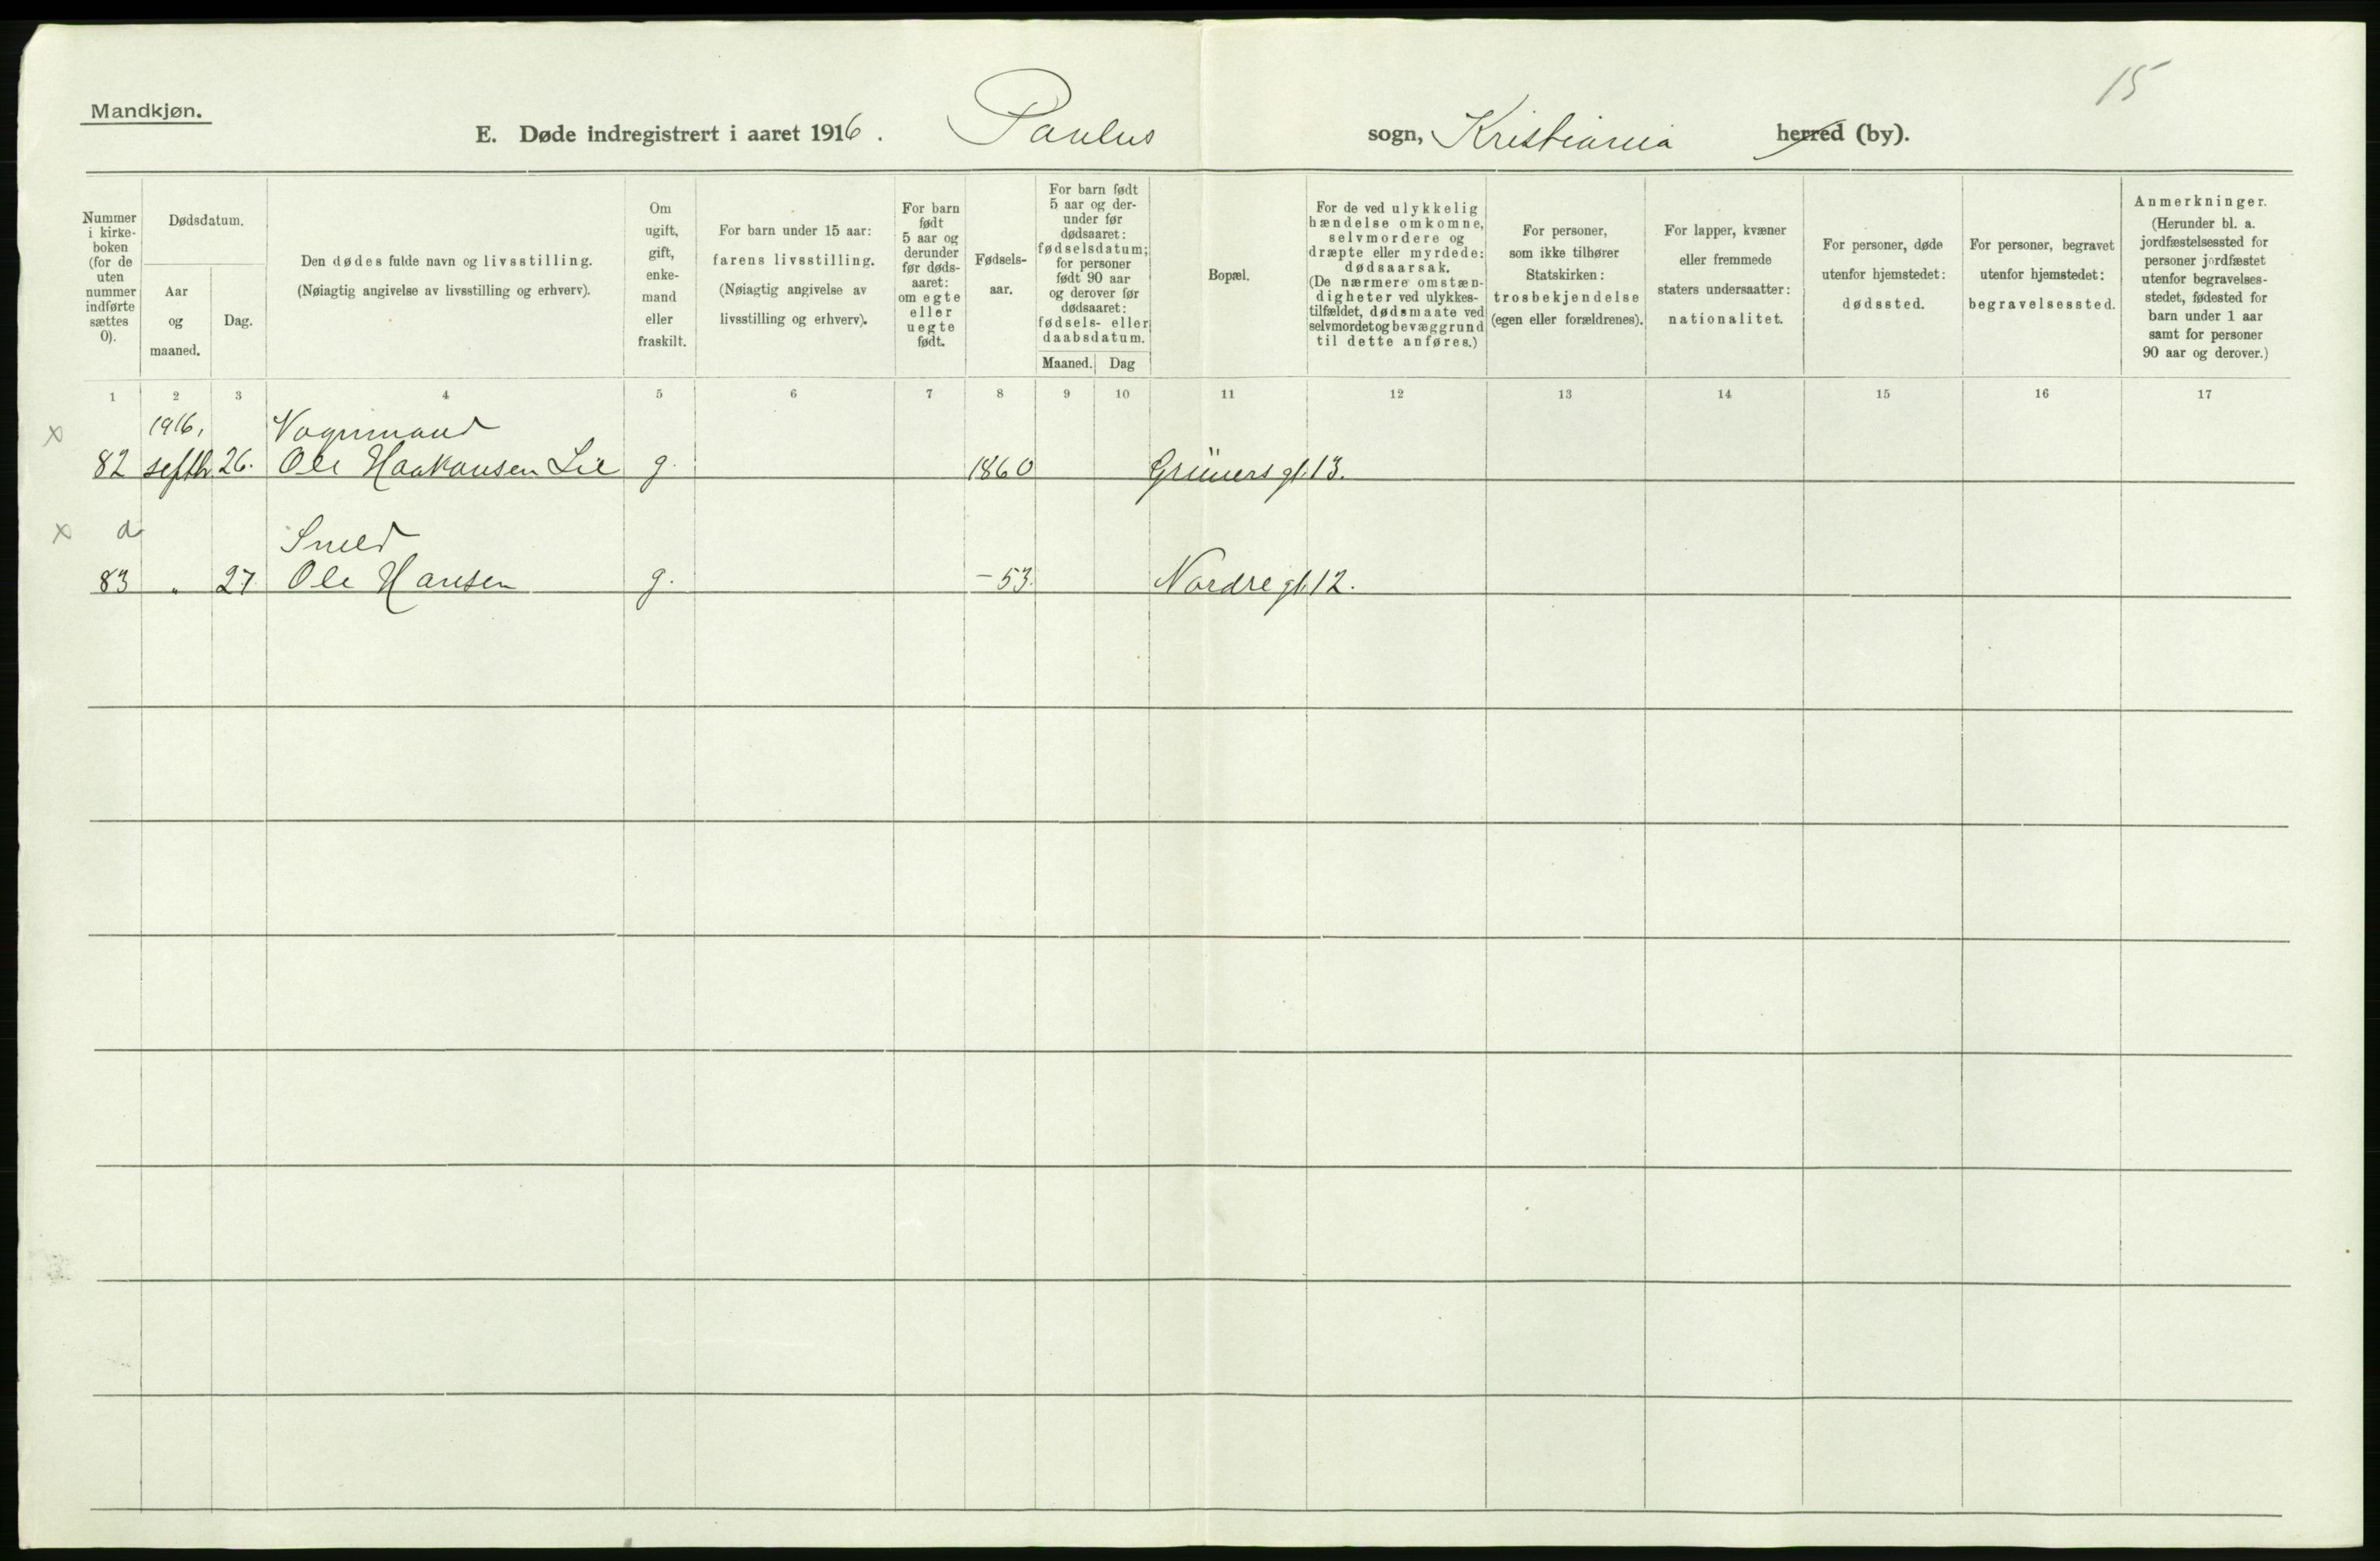 15
Mandkjøn.
E. Døde indregistrert i aaret 1916. Paulus sogn, Kristiania herred (by).
Nummer i kirke- boken (for de uten nummer indførte sættes 0).
Dødsdatum.
Aar og maaned.
Dag.
Den dødes fulde navn og livsstilling.
(Nøiagtig angivelse av livsstilling og erhverv).
Om ugift, gift, enke- mand eller fraskilt.
For barn under 15 aar: farens livsstilling.
(Nøiagtig angivelse av livsstilling og erhverv).
For barn født 5 aar og derunder før døds- aaret: om egte eller uegte født.
Fødsels- aar.
For barn født 5 aar og der- under før dødsaaret: fødselsdatum; for personer født 90 aar og derover før dødsaaret: fødsels- eller daabsdatum.
Maaned.
Dag
Bopæl.
For de ved ulykkelig hændelse omkomne, selvmordere og dræpte eller myrdede: dødsaarsak.
(De nærmere omstæn- digheter ved ulykkes- tilfældet, dødsmaate ved selvmordet og bevæggrund til dette anføres.)
For personer, som ikke tilhører Statskirken: trosbekjendelse (egen eller forældrenes).
For lapper, kvæner eller fremmede staters undersaatter: nationalitet.
For personer, døde utenfor hjemstedet: dødssted.
For personer, begravet utenfor hjemstedet: begravelsessted.
Anmerkninger.
(Herunder bl. a. jordfæstelsessted for personer jordfæstet utenfor begravelses- stedet, fødested for barn under 1 aar samt for personer 90 aar og derover.)
1 2 3 4 5 6 7 8 9 10 11 12 13 14 15 16 17
x 1916, Vognmand
82 septbr. 26. Ole Haakonsen Lie g. 1860 Grüners gt. 13.
x a Smed
83 " 27. Ole Hansen g. -53. Nordre gt. 12.